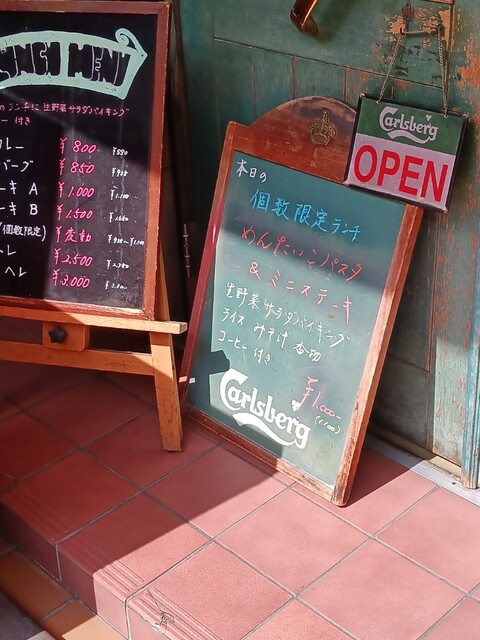 LUNCH MENU
ランチに 生野菜サラダバイキング
ー 付き
カレー ¥800- ¥880
バーグ ¥850
ーキ A ¥1.000 ¥1.100
ーキ B ¥1,500 ¥1.650
(個数限定) ¥変動
レ ¥2,500
ヘレ ¥3.000
Carlsberg
OPEN
本日の
個数限定ランチ
めんたいこパスタ
& ミニステーキ
生野菜 サラダバイキング
ライス みそ汁 香物
コーヒー 付き
¥1.000-
(1.100)
Carlsberg